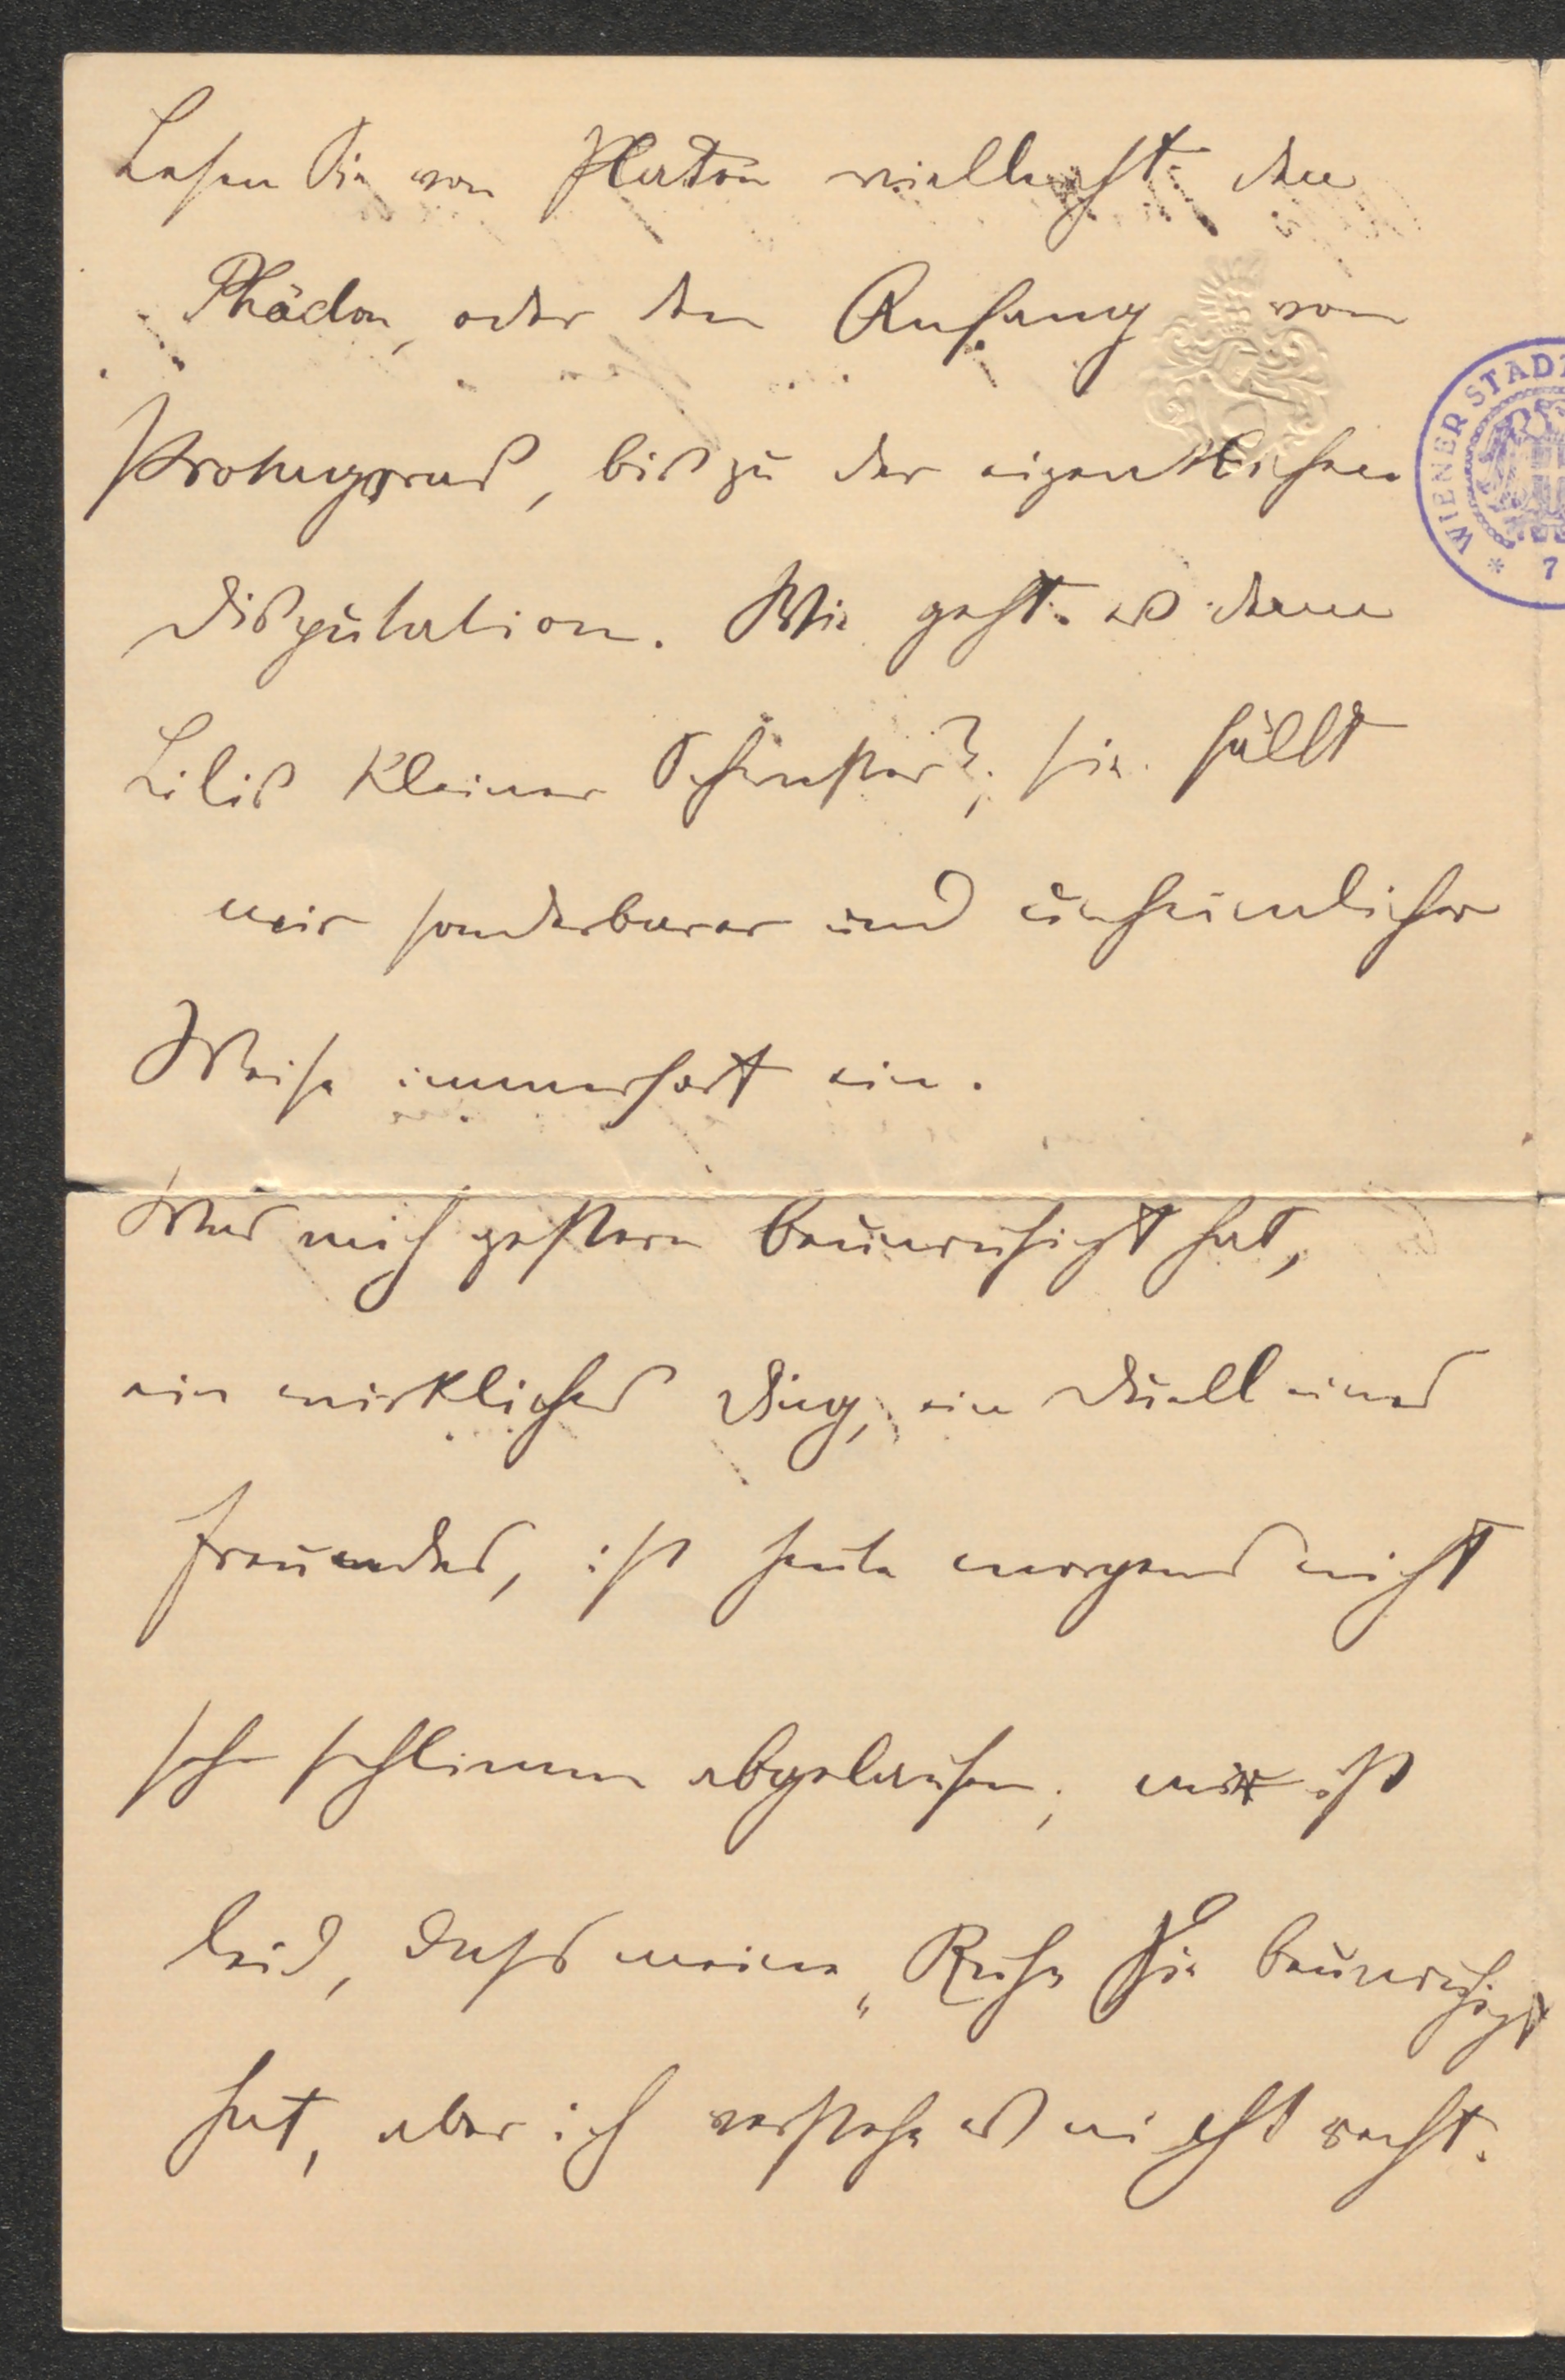 Lesen Sie von Platon vielleicht den
Phädon, oder den Anfang von
Protagoras, bis zu der eigentlichen
Disputation. Wie geht es denn
Lilis kleiner Schwester?; sie fällt
mir sonderbarer und unheimlicher
Weise immerfort ein.
Was mich gestern beunruhigt hat,
ein wirkliches Ding, ein Duell eines
Freundes, ist heute morgens nicht
sehr schlimm abgelaufen; mir ist
leid, dass meine „Ruhe Sie beunruhigt
hat, aber ich verstehe es nicht recht.
WIENER STADT
* 7